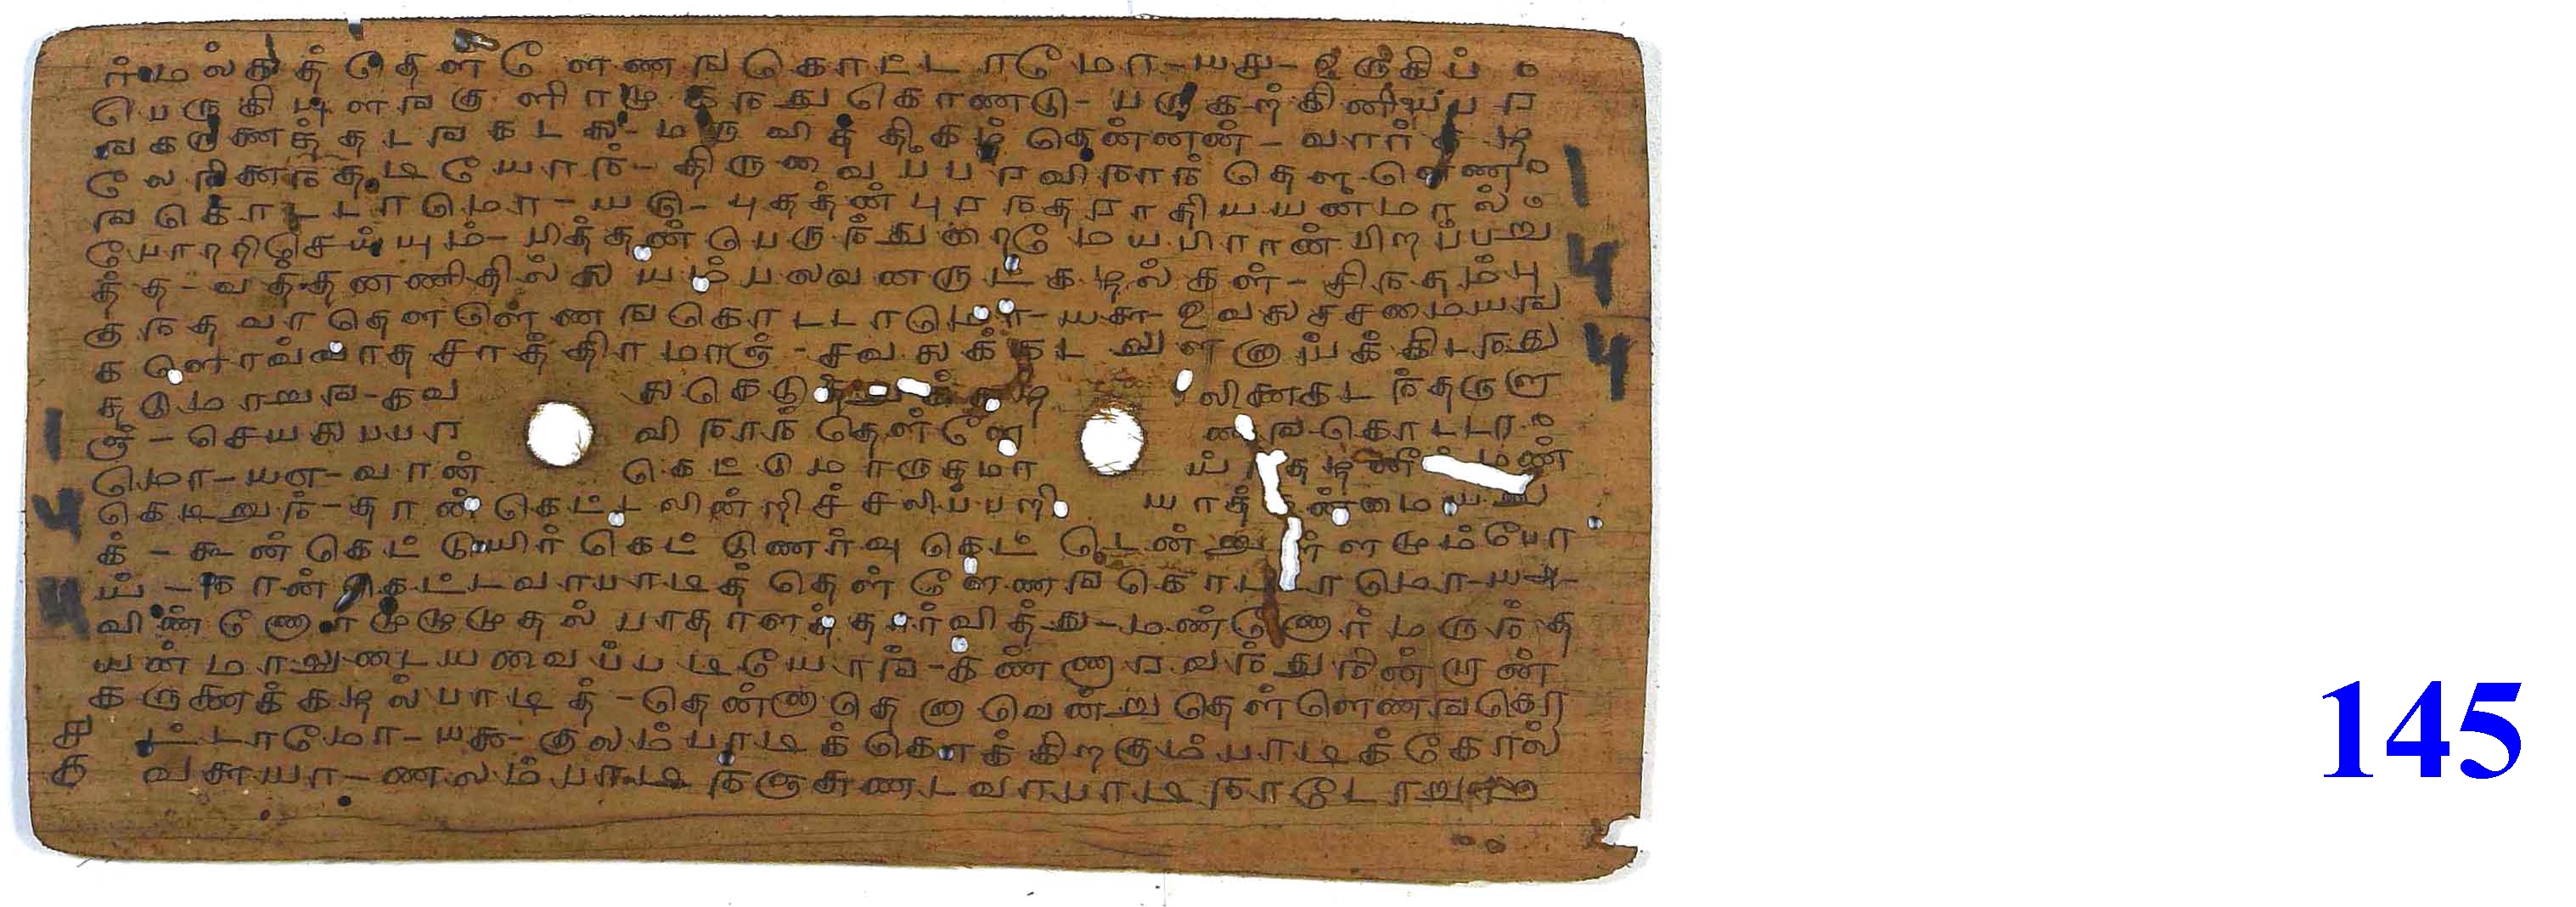 ர்மல்கத் தெள்ளேணங கொட்டாமோ-யசு-உருகிப்
பெருகியுளங குளிரமுகநது கொண்டு-பருகற்கினியபர
ஙகருணைத்தடங கடலை-மருவித் திகழ் தென்னன்-வார்கழ
லே நினைநதடியோந்-திருவைப பரவிநாந் தெளளெண
ங கொட்டாமொ-யடு-புத்தன் புரநதராதியயன்மால்
போற்றிசெய்யும்-பித்தன் பெருந்துறைமேய பிரான் பிறப்பறு
த்த-வத்தனணிதில்லை யம்பலவனருட்கழல்கள்-சிநதம்பு
குநதவா தெளளெணங கொட்டாமொ-யசா-உவலைசசமையங
களொவ்வாத சாத்திரமாஞ்-சவலைக்கடலுளனாய்க்கிடநது
தடுமாறுங-கவலை கெடுத்து லிணைகடந்தருளு
ஞ்-செயலைபபர விநாந் தெள்ளே ணங கொட்டா
மொ-யஎ-வான் கெட்டு மாருதமா ய்ந்தழனீ மண்
கெடினுந்-தான் கெட்டலின்றிச் சலிப்பறி யாத்தன்மையனு
க்-கூன் கெட்டுயிர் கெட்டுணர்வு கெட்டென்னுள்ளமும்போ
ய்-நான் கெட்டவாபாடித் தெள்ளேணங கொட்டாமொ-யஅ-
விண்ணோர் முழுமுதல் பாதாளத்தார்வித்து-மண்ணோர் மருந்த
யன்மாலுடைய வைப்படியோங்-கண்ணாரவந்து நின்றான்
கருணைக்கழல்பாடித்-தென்னாதெனாவென்று தெள்ளெணஙகொ
ட்டாமோ-யகூ-குலம்பாடிக் கொக்கிறகும்பாடிக் கோல்
வளையா-ணலம்பாடி நஞசுணடவாபாடி நாடோறு
145